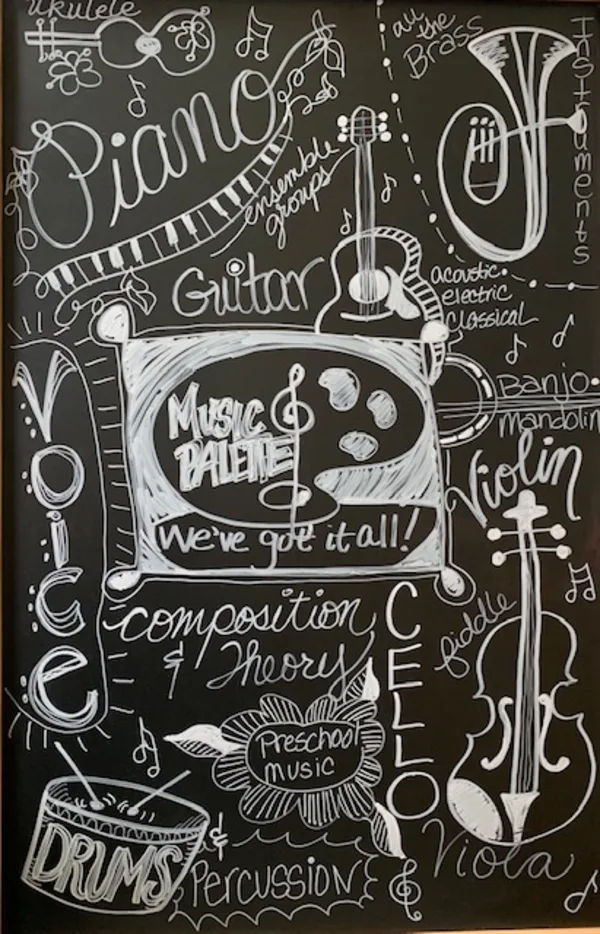 ukulele
all the
Brass
Instruments
Piano
ensemble
groups
Guitar
acoustic
electric
Classical
Voice
MUSIC
PALETTE
We've got it all!
Banjo
Mandolin
Violin
fiddle
composition
& Theory
CELLO
Preschool
music
DRUMS
&
Percussion
Viola